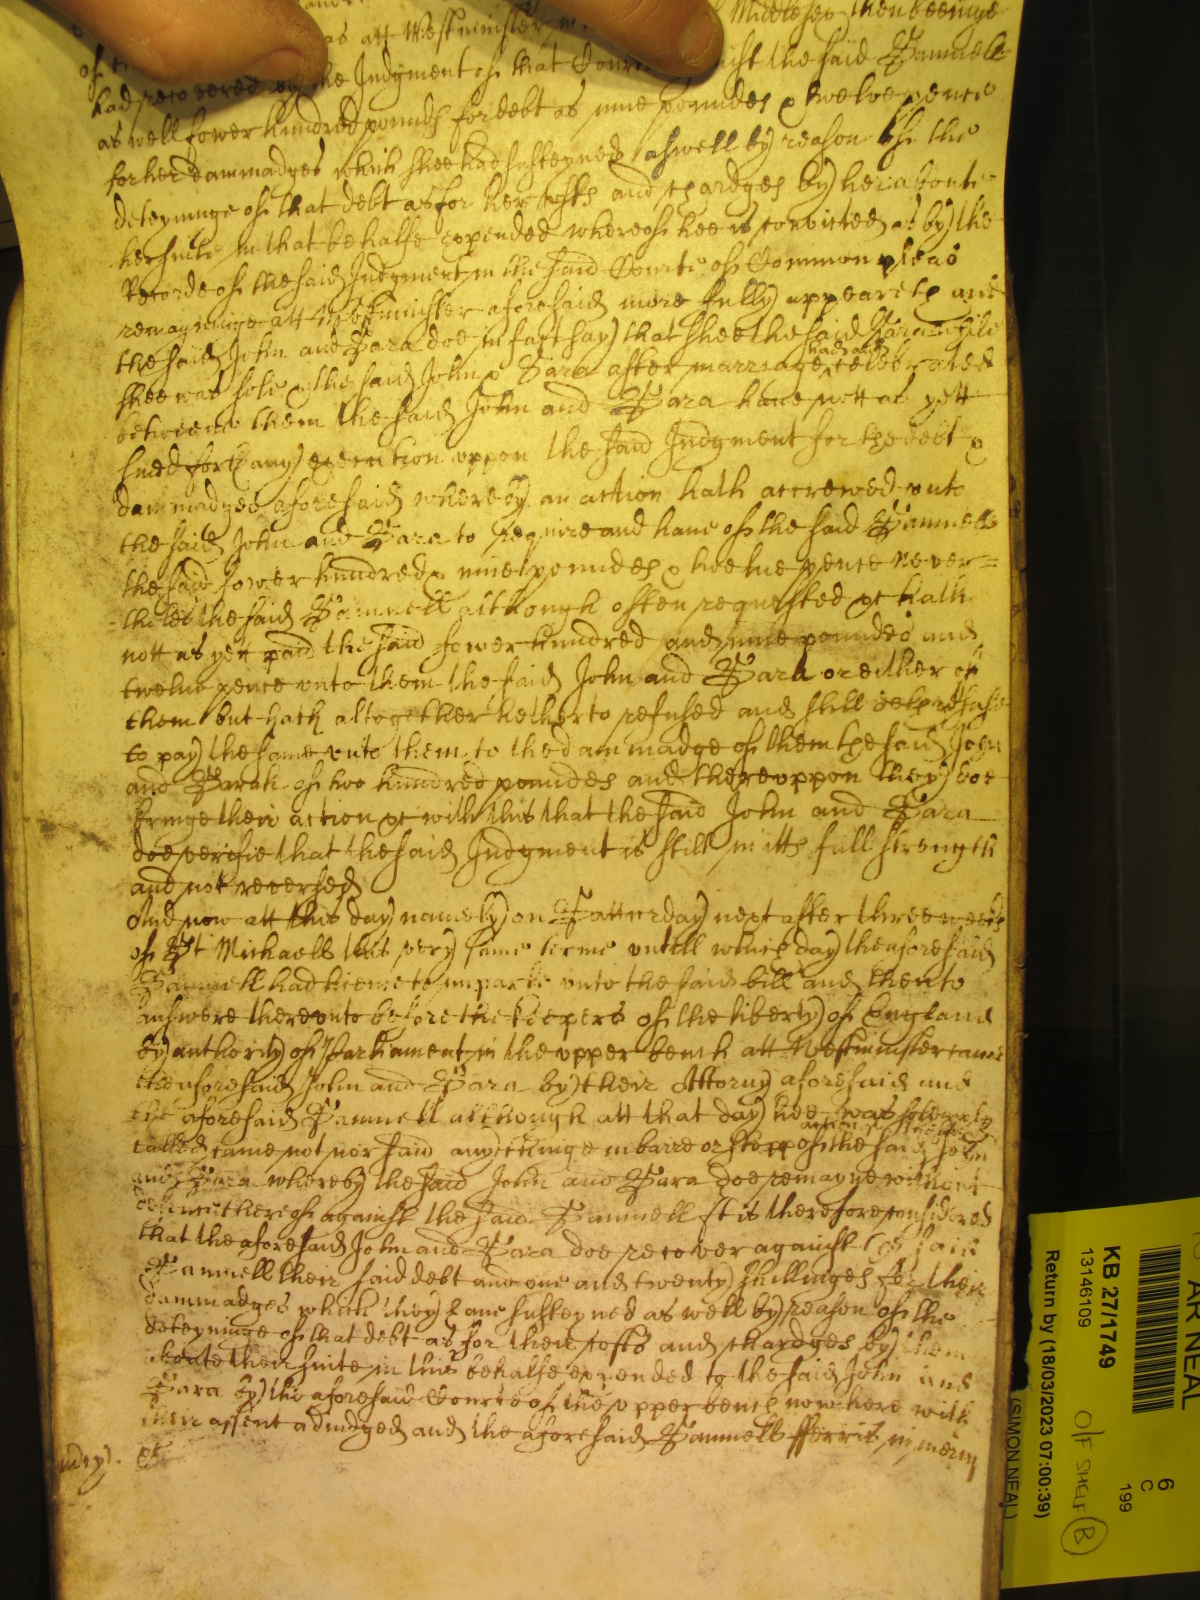 as att Westminster in Middlesex then beeinge
of t
had recovered by the Judgment of that Court against the said Samuell
as well fower hundred pounds for debt as nine poundes & twelve pence
for her dammadges which shee had susteyned aswell by reason of the
deteyninge of that debt as for her costs and chardges by her aboute
her suite in that behalfe expended whereof hee is convicted as by the
Recorde of the said Judgment in the said Courte of Common pleas
remayninge att Westminster aforesaid more fully appeareth and
the said John and Sara doe in fact say that shee the said Sara while
shee was sole & the said John & Sara after marriage had and celebrated
betweene them the said John and Sara have nott as yett
sued forth any execution uppon the said Judgment for the debt &
dammadges aforesaid whereby an action hath accrewed unto
the said John and Sara to require and have of the said Samuell
the said fower hundred & nine poundes & twelve pence Never=
=theles the said Samuell although often requested &c hath
nott as yet paid the said fower hundred and nine poundes and
twelve pence unto them the said John and Sara or either of
them but hath altogether hetherto refused and still doth refuse
to pay the same unto them to the dammadge of them the said John
and Sarah of two hundred poundes and thereuppon they doe
bringe their action &c with this that the said John and Sara
doe verifie that the said Judgment is still in itts full strength
and not reversed
And now att this day namely on Satturday next after three weeks
of St Michaell this very same terme untill which day the aforesaid
Samuell had licence to imparle unto the said bill and then to
answere thereunto before the Keepers of the liberty of England
by authority of Parliament in the upper bench att Westminster came
the aforesaid John and Sara by their Attorny aforesaid and
the aforesaid Samuell although att that day hee was solemply
called came not nor said any thinge in barre or stopp of the action of the said John
and Sara whereby the said John and Sara doe remayne without
defence thereof against the said Samuell It is therefore considered
that the aforesaid John and Sara doe recover against the said
Samuell their said debt and one and twenty shillinges for their
dammadges which they have susteyned as well by reason of the
deteyninge of that debt as for their costs and chardges by them
aboute their suite in this behalfe expended to the said John and
Sara by the aforesaid Courte of the upper bench now here with
their assent adiudged and the aforesaid Samuell fferris in mercy
&c
mercy.
AR NEAL
6
C
199
KB 27/1749
13146109
O/F SHELF B
Return by (18/03/2023 07:00:39)
(SIMON NEAL)